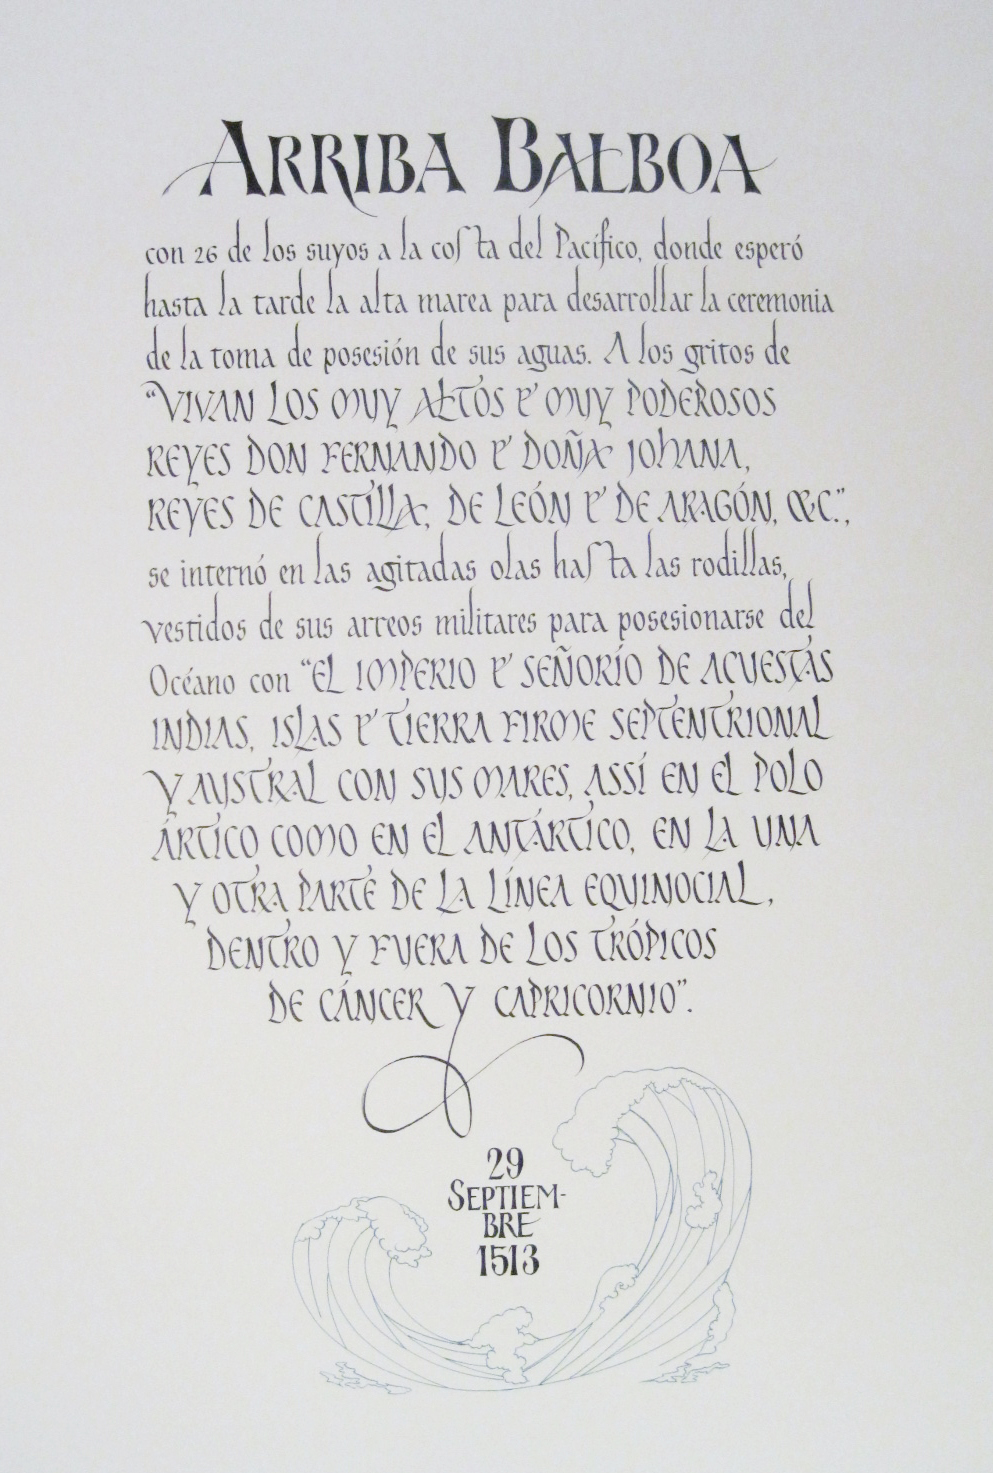 ARRIBA BALBOA
con 26 de los suyos a la coſta del Pacífico, donde esperó
hasta la tarde la alta marea para desarrollar la ceremonia
de la toma de posesión de sus aguas. A los gritos de
"VIVAN LOS MUY ALTOS E' MUY PODEROSOS
REYES DON FERNANDO E' DOÑA JOHANA,
REYES DE CASTILLA, DE LEÓN E' DE ARAGÓN, &C.",
se internó en las agitadas olas haſta las rodillas,
vestidos de sus arreos militares para posesionarse del
Océano con "EL IMPERIO E' SEÑORÍO DE ACUESTAS
INDIAS, ISLAS E' TIERRA FIRME SEPTENTRIONAL
Y AUSTRAL CON SUS MARES, ASSÍ EN EL POLO
ÁRTICO COMO EN EL ANTÁRTICO, EN LA UNA
Y OTRA PARTE DE LA LÍNEA EQUINOCIAL,
DENTRO Y FUERA DE LOS TRÓPICOS
DE CÁNCER Y CAPRICORNIO".
29
SEPTIEM-
BRE
1513